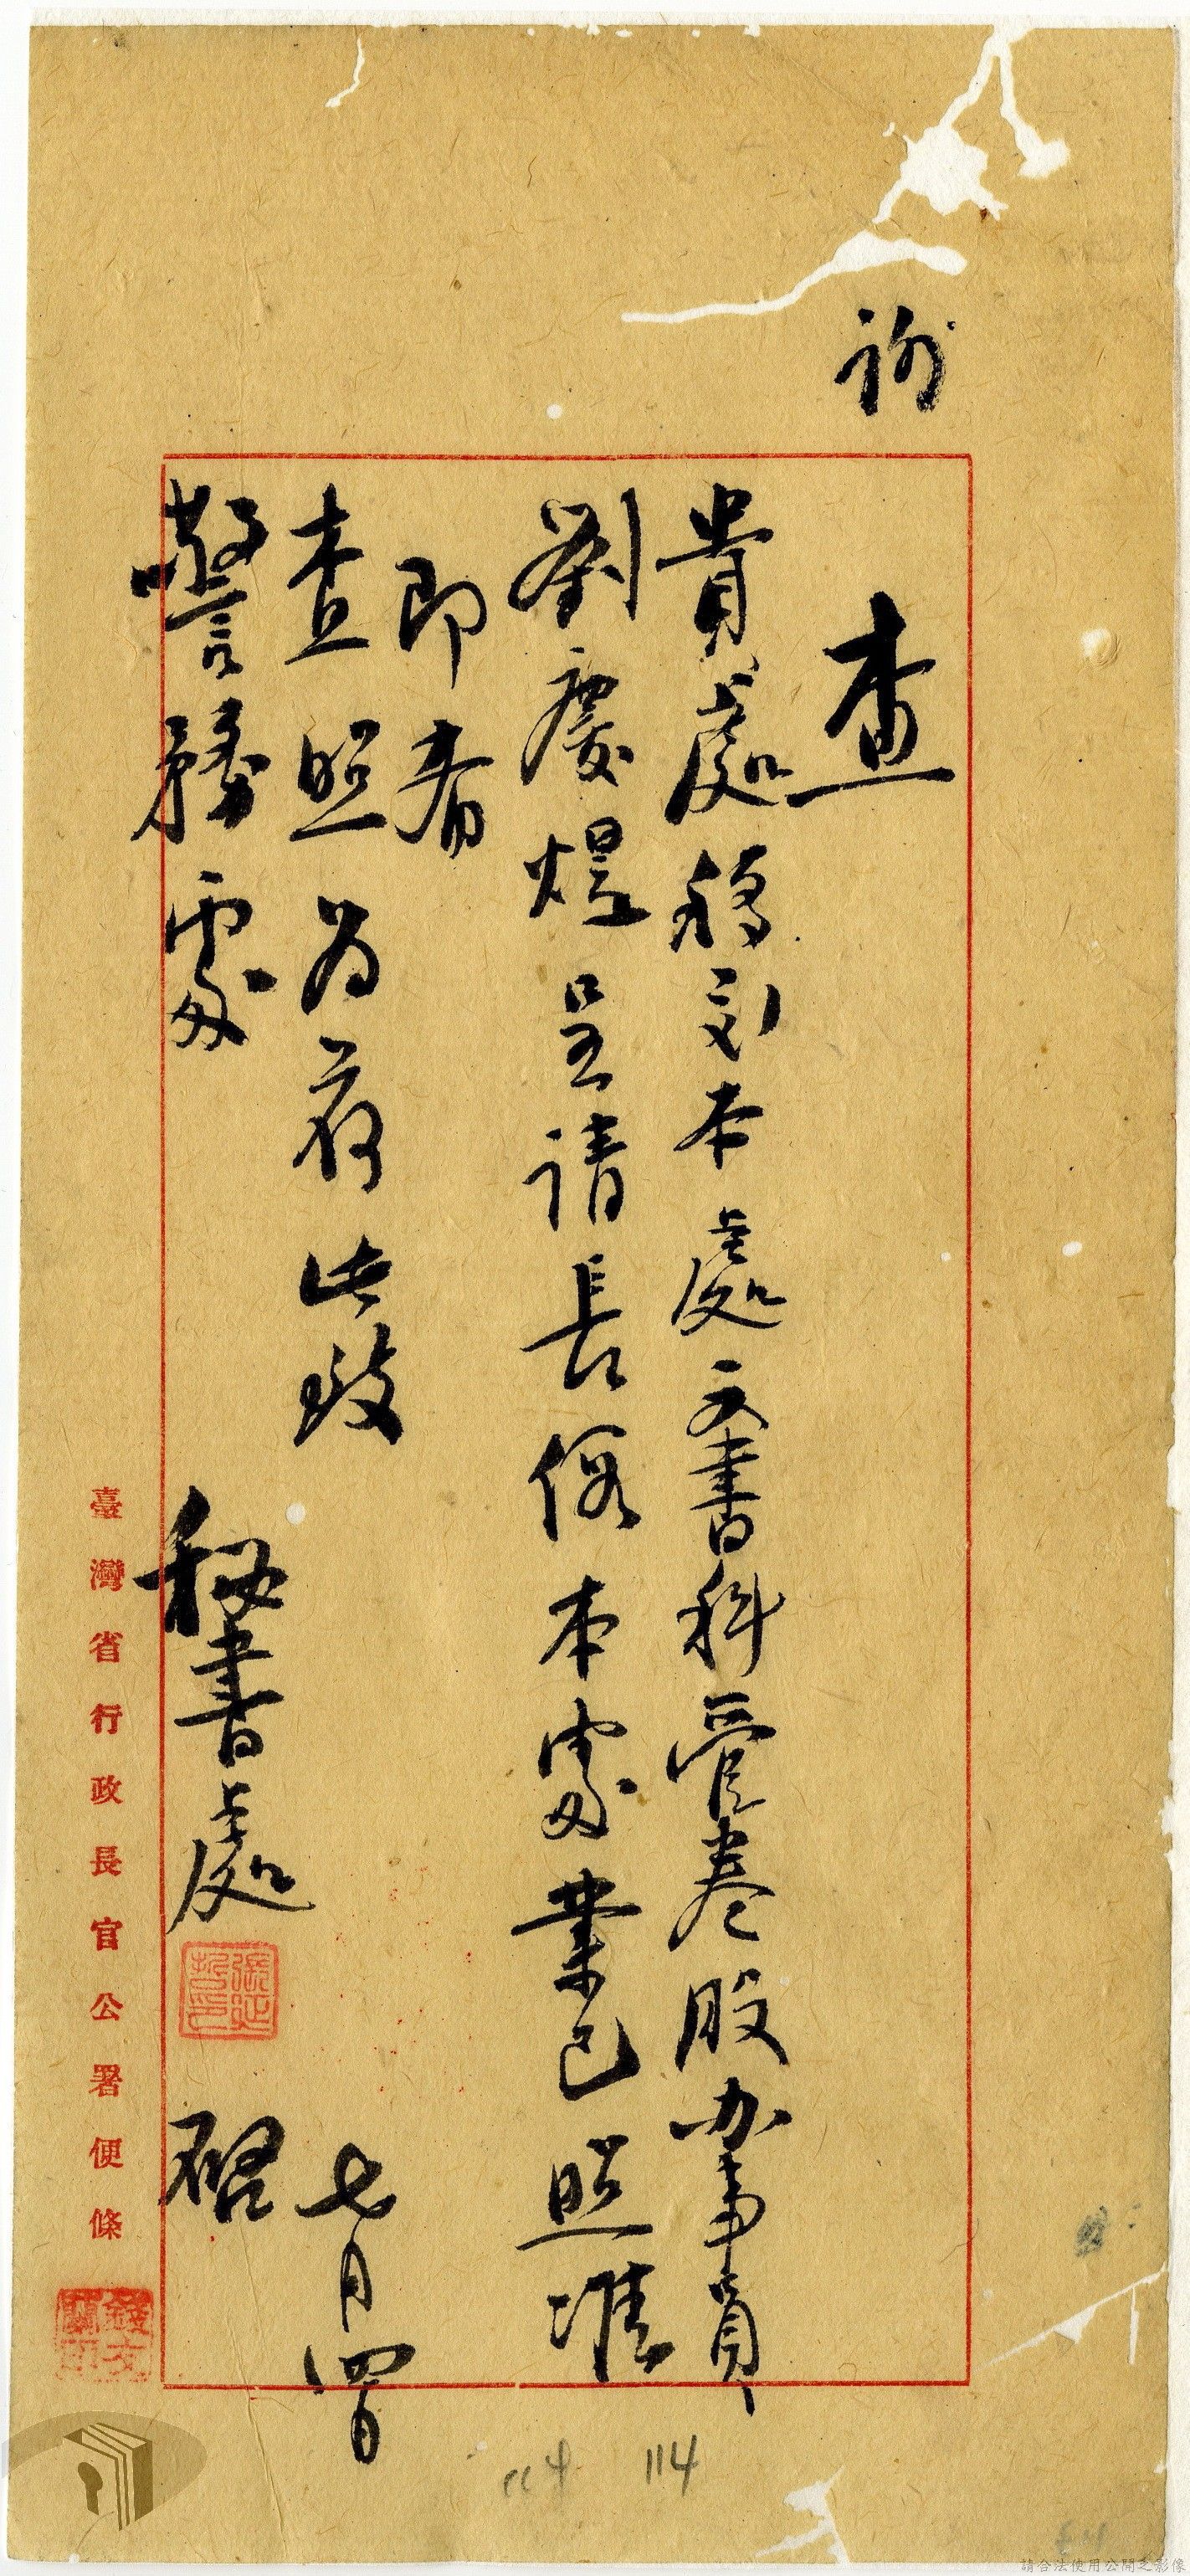 查
貴處移交本處文書科管卷股办事員
劉慶煜呈請長假本處業已照准
即希
查照為荷此致
警務處
秘書處
啓
七月四日
臺灣省行政長官公署便條
114
114
請合法使用公開之影像